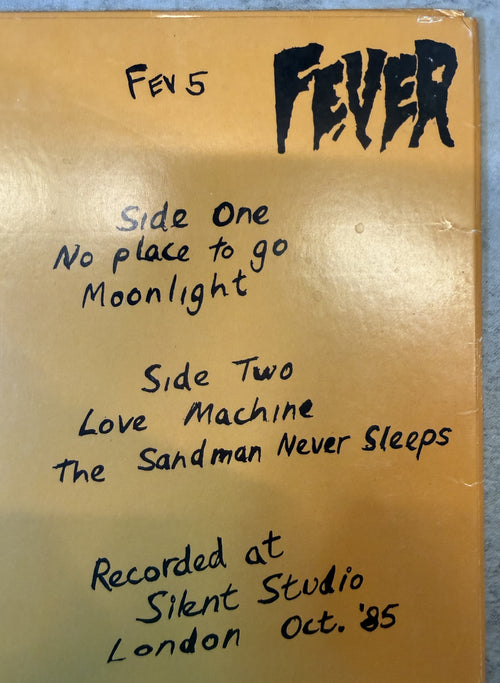 FEV 5
FEVER
Side One
No place to go
Moonlight
Side Two
Love Machine
The Sandman Never Sleeps
Recorded at
Silent Studio
London Oct. '85